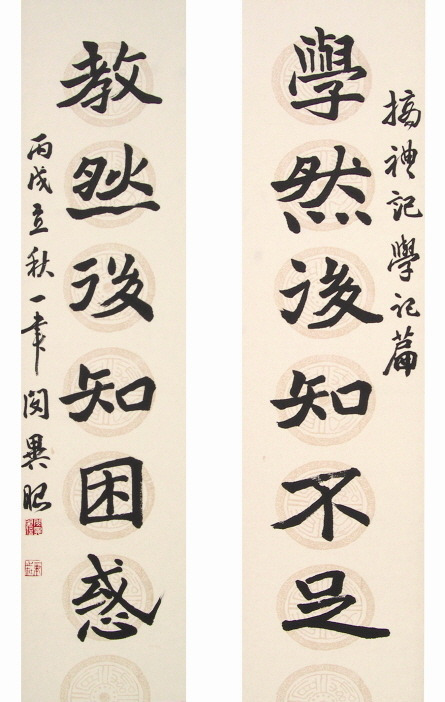 摘禮記學記篇
學然後知不足
教然後知困惑
丙戌立秋一聿